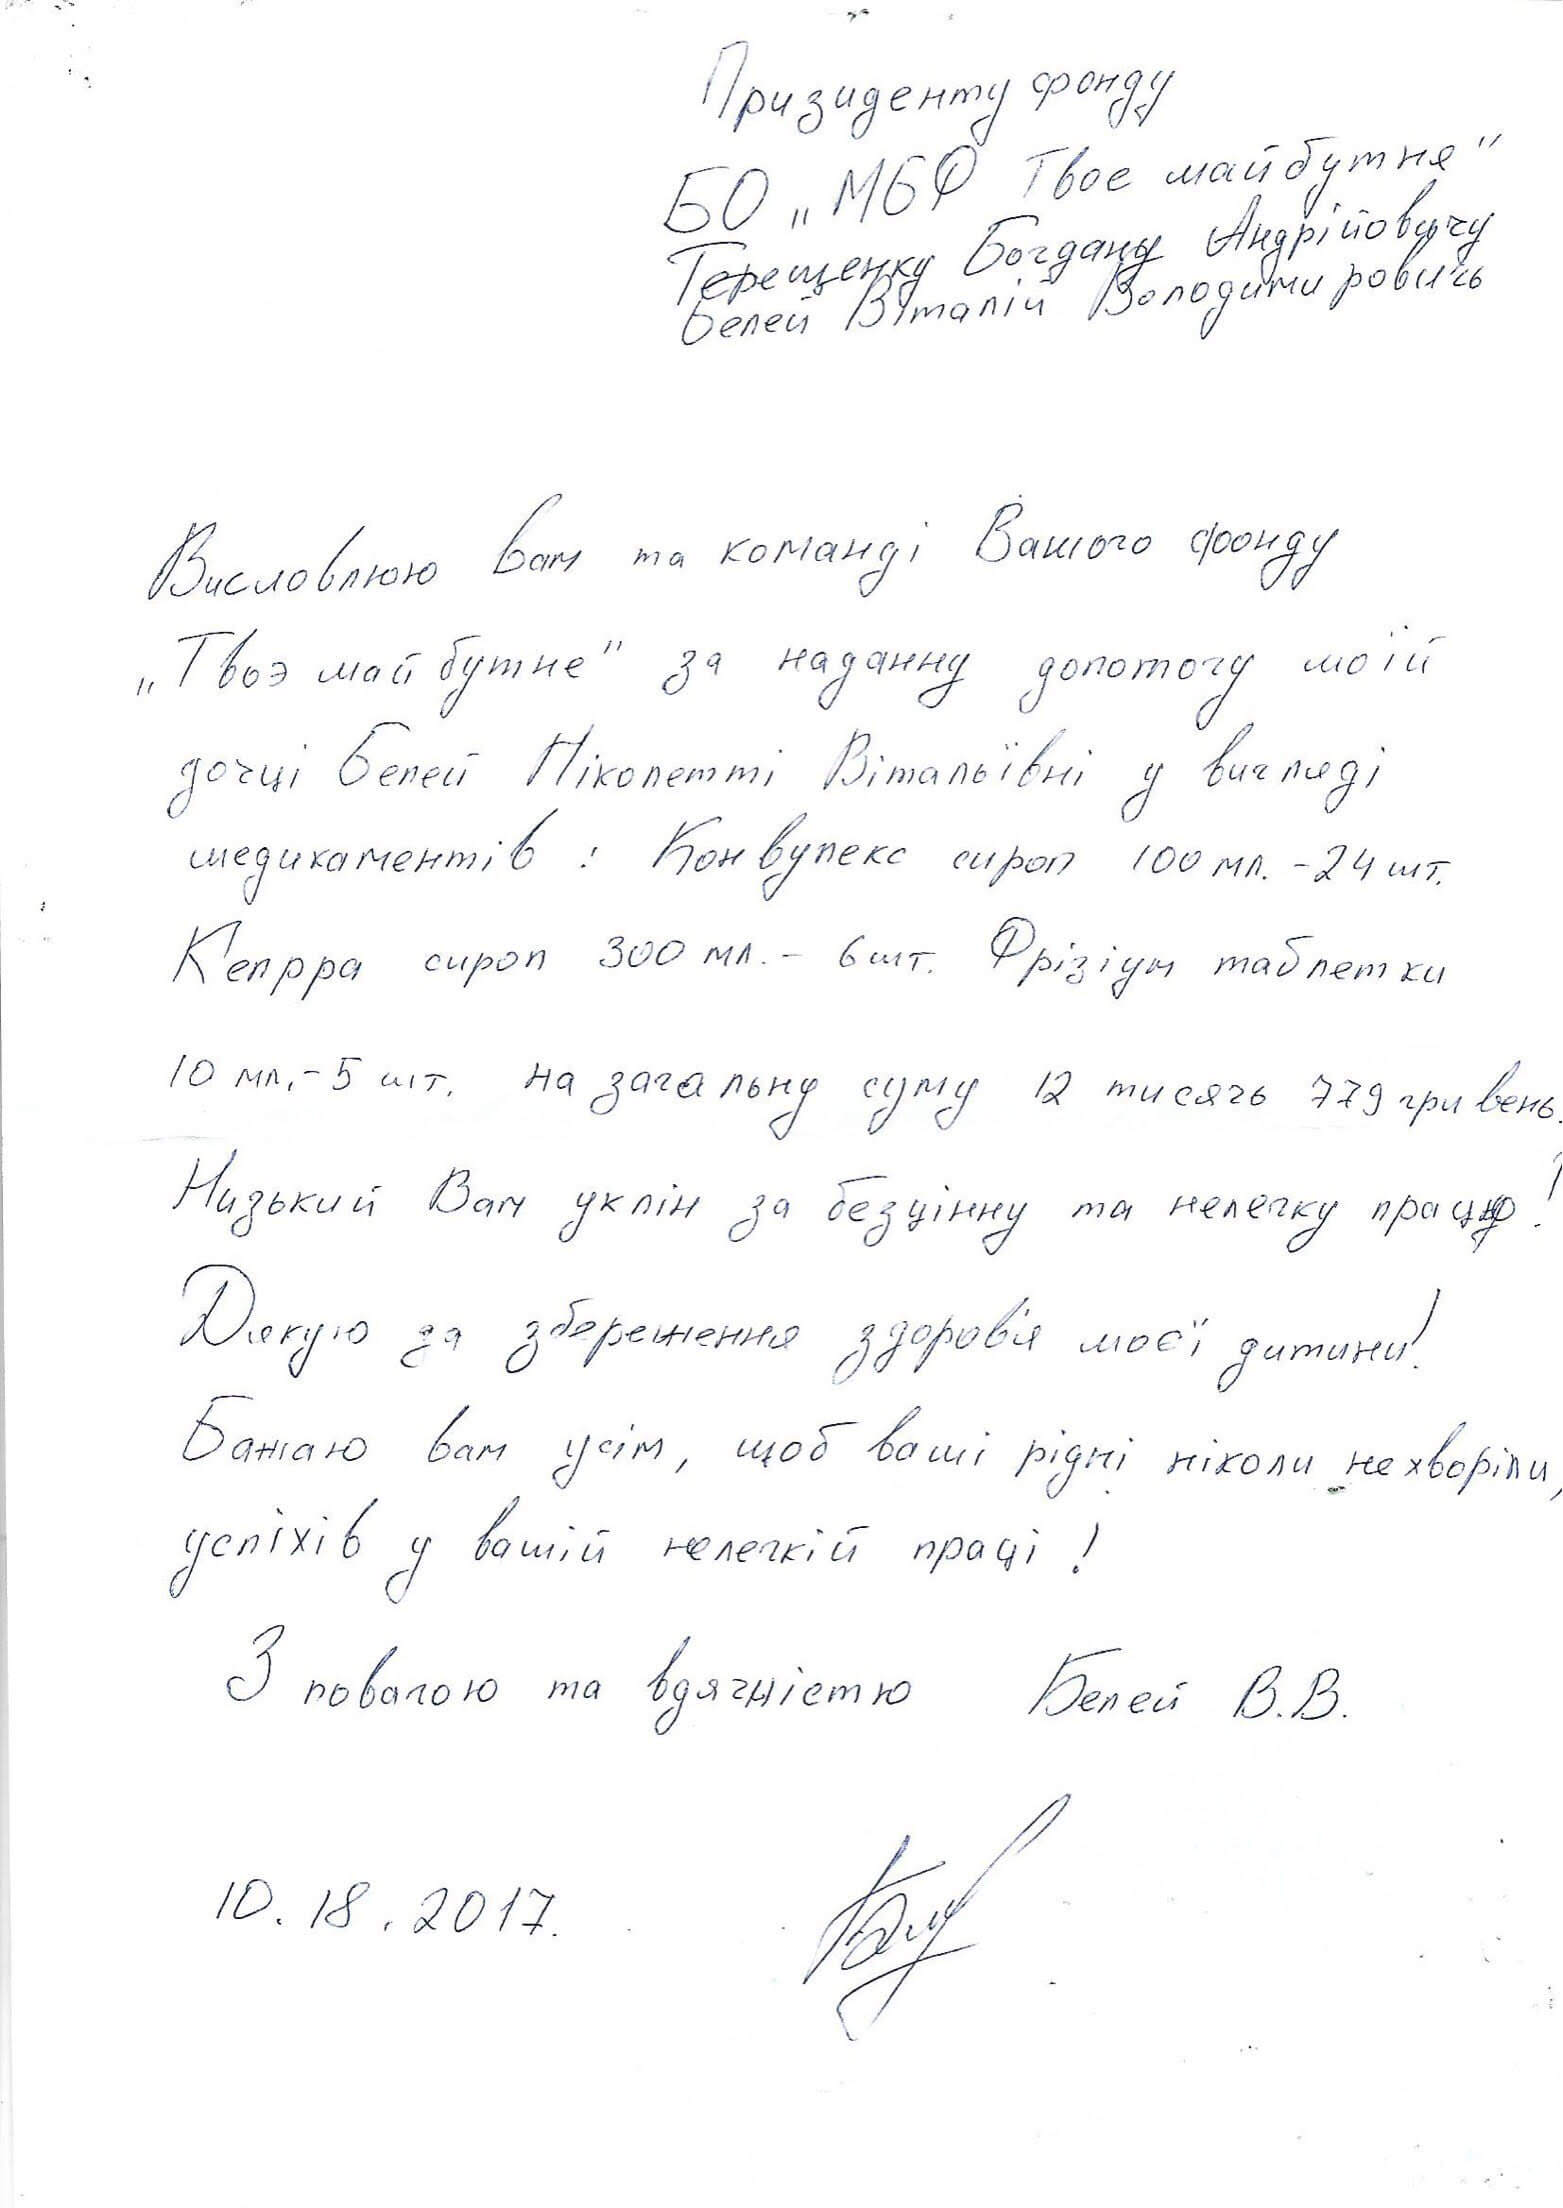 Призиденту фонду
БО „МБФ Твоє майбутня"
Терещенку Богдану Андрійовичу
Белей Віталій Володимировичь
Висловлюю Вам та команді Вашого фонду
„Твоэ майбутне" за наданну допомогу моїй
дочці Белей Ніколетті Вітальївні у вигляді
медикаментів : Конвулекс сироп 100 мл. - 24 шт.
Кеппра сироп 300 мл. - 6 шт. Фрізіум таблетки
10 мл. - 5 шт. на загальну суму 12 тисячь 779 гривень.
Низький Вам уклін за безцінну та нелегку працю!
Дякую за збереження здоров'я моєї дитини!
Бажаю вам усім, щоб ваші рідні ніколи не хворіли,
успіхів у вашій нелегкій праці!
З повагою та вдячністю Белей В.В.
10.18.2017.